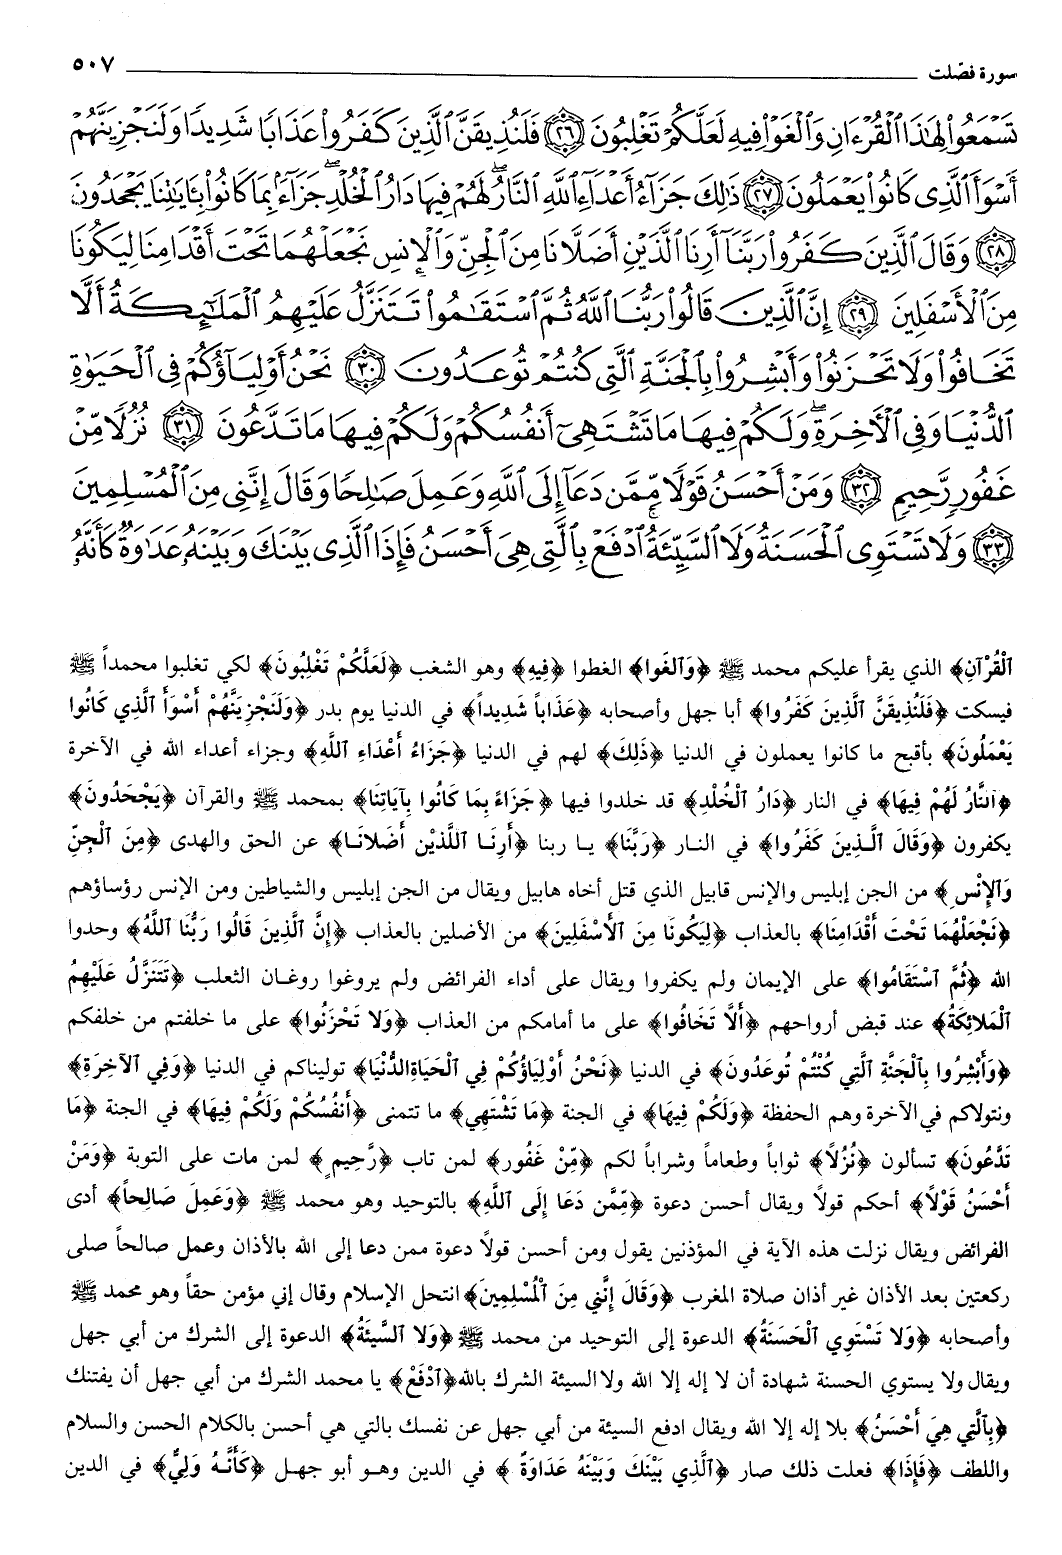 سورة فصّلت ٥٠٧
تَسۡمَعُواْ لِهَٰذَا ٱلۡقُرۡءَانِ وَٱلۡغَوۡاْ فِيهِ لَعَلَّكُمۡ تَغۡلِبُونَ ٢٦ فَلَنُذِيقَنَّ ٱلَّذِينَ كَفَرُواْ عَذَابٗا شَدِيدٗا وَلَنَجۡزِيَنَّهُمۡ
أَسۡوَأَ ٱلَّذِي كَانُواْ يَعۡمَلُونَ ٢٧ ذَٰلِكَ جَزَآءُ أَعۡدَآءِ ٱللَّهِ ٱلنَّارُۖ لَهُمۡ فِيهَا دَارُ ٱلۡخُلۡدِ جَزَآءَۢ بِمَا كَانُواْ بِـَٔايَٰتِنَا يَجۡحَدُونَ
٢٨ وَقَالَ ٱلَّذِينَ كَفَرُواْ رَبَّنَآ أَرِنَا ٱلَّذَيۡنِ أَضَلَّانَا مِنَ ٱلۡجِنِّ وَٱلۡإِنسِ نَجۡعَلۡهُمَا تَحۡتَ أَقۡدَامِنَا لِيَكُونَا
مِنَ ٱلۡأَسۡفَلِينَ ٢٩ إِنَّ ٱلَّذِينَ قَالُواْ رَبُّنَا ٱللَّهُ ثُمَّ ٱسۡتَقَٰمُواْ تَتَنَزَّلُ عَلَيۡهِمُ ٱلۡمَلَٰٓئِكَةُ أَلَّا
تَخَافُواْ وَلَا تَحۡزَنُواْ وَأَبۡشِرُواْ بِٱلۡجَنَّةِ ٱلَّتِي كُنتُمۡ تُوعَدُونَ ٣٠ نَحۡنُ أَوۡلِيَآؤُكُمۡ فِي ٱلۡحَيَوٰةِ
ٱلدُّنۡيَا وَفِي ٱلۡأٓخِرَةِۖ وَلَكُمۡ فِيهَا مَا تَشۡتَهِيٓ أَنفُسُكُمۡ وَلَكُمۡ فِيهَا مَا تَدَّعُونَ ٣١ نُزُلٗا مِّنۡ
غَفُورٖ رَّحِيمٖ ٣٢ وَمَنۡ أَحۡسَنُ قَوۡلٗا مِّمَّن دَعَآ إِلَى ٱللَّهِ وَعَمِلَ صَٰلِحٗا وَقَالَ إِنَّنِي مِنَ ٱلۡمُسۡلِمِينَ
٣٣ وَلَا تَسۡتَوِي ٱلۡحَسَنَةُ وَلَا ٱلسَّيِّئَةُۚ ٱدۡفَعۡ بِٱلَّتِي هِيَ أَحۡسَنُ فَإِذَا ٱلَّذِي بَيۡنَكَ وَبَيۡنَهُۥ عَدَٰوَةٞ كَأَنَّهُۥ
ٱلْقُرْآنِ﴾ الذي يقرأ عليكم محمد ﷺ ﴿وَٱلْغَوا﴾ الغطوا ﴿فِيهِ﴾ وهو الشغب ﴿لَعَلَّكُمْ تَغْلِبُونَ﴾ لكي تغلبوا محمداً ﷺ
فيسكت ﴿فَلَنُذِيقَنَّ ٱلَّذِينَ كَفَرُوا﴾ أبا جهل وأصحابه ﴿عَذَاباً شَدِيداً﴾ في الدنيا يوم بدر ﴿وَلَنَجْزِيَنَّهُمْ أَسْوَأَ ٱلَّذِي كَانُوا
يَعْمَلُونَ﴾ بأقبح ما كانوا يعملون في الدنيا ﴿ذَلِكَ﴾ لهم في الدنيا ﴿جَزَاءُ أَعْدَاءِ ٱللَّهِ﴾ وجزاء أعداء الله في الآخرة
﴿ٱلنَّارُ لَهُمْ فِيهَا﴾ في النار ﴿دَارُ ٱلْخُلْدِ﴾ قد خلدوا فيها ﴿جَزَاءً بِمَا كَانُوا بِآيَاتِنَا﴾ بمحمد ﷺ والقرآن ﴿يَجْحَدُونَ﴾
يكفرون ﴿وَقَالَ ٱلَّذِينَ كَفَرُوا﴾ في النار ﴿رَبَّنَا﴾ يا ربنا ﴿أَرِنَا ٱللَّذَيْنِ أَضَلانَا﴾ عن الحق والهدى ﴿مِنَ ٱلْجِنِّ
وَٱلإِنْسِ﴾ من الجن إبليس والإنس قابيل الذي قتل أخاه هابيل ويقال من الجن إبليس والشياطين ومن الإنس رؤساؤهم
﴿نَجْعَلْهُمَا تَحْتَ أَقْدَامِنَا﴾ بالعذاب ﴿لِيَكُونَا مِنَ ٱلأَسْفَلِينَ﴾ من الأضلين بالعذاب ﴿إِنَّ ٱلَّذِينَ قَالُوا رَبُّنَا ٱللَّهُ﴾ وحدوا
الله ﴿ثُمَّ ٱسْتَقَامُوا﴾ على الإيمان ولم يكفروا ويقال على أداء الفرائض ولم يروغوا روغان الثعلب ﴿تَتَنَزَّلُ عَلَيْهِمُ
ٱلْمَلائِكَةُ﴾ عند قبض أرواحهم ﴿أَلَّا تَخَافُوا﴾ على ما أمامكم من العذاب ﴿وَلا تَحْزَنُوا﴾ على ما خلفتم من خلفكم
﴿وَأَبْشِرُوا بِٱلْجَنَّةِ ٱلَّتِي كُنْتُمْ تُوعَدُونَ﴾ في الدنيا ﴿نَحْنُ أَوْلِيَاؤُكُمْ فِي ٱلْحَيَاةِ الدُّنْيَا﴾ توليناكم في الدنيا ﴿وَفِي ٱلآخِرَةِ﴾
ونتولاكم في الآخرة وهم الحفظة ﴿وَلَكُمْ فِيهَا﴾ في الجنة ﴿مَا تَشْتَهِي﴾ ما تتمنى ﴿أَنْفُسُكُمْ وَلَكُمْ فِيهَا﴾ في الجنة ﴿مَا
تَدَّعُونَ﴾ تسألون ﴿نُزُلاً﴾ ثواباً وطعاماً وشراباً لكم ﴿مِّنْ غَفُورٍ﴾ لمن تاب ﴿رَّحِيمٍ﴾ لمن مات على التوبة ﴿وَمَنْ
أَحْسَنُ قَوْلاً﴾ أحكم قولاً ويقال أحسن دعوة ﴿مِّمَّن دَعَا إِلَى ٱللَّهِ﴾ بالتوحيد وهو محمد ﷺ ﴿وَعَمِلَ صَالِحاً﴾ أدى
الفرائض ويقال نزلت هذه الآية في المؤذنين يقول ومن أحسن قولاً دعوة ممن دعا إلى الله بالأذان وعمل صالحاً صلى
ركعتين بعد الأذان غير أذان صلاة المغرب ﴿وَقَالَ إِنَّنِي مِنَ ٱلْمُسْلِمِينَ﴾ انتحل الإسلام وقال إني مؤمن حقاً وهو محمد ﷺ
وأصحابه ﴿وَلا تَسْتَوِي ٱلْحَسَنَةُ﴾ الدعوة إلى التوحيد من محمد ﷺ ﴿وَلا ٱلسَّيِّئَةُ﴾ الدعوة إلى الشرك من أبي جهل
ويقال ولا يستوي الحسنة شهادة أن لا إله إلا الله ولا السيئة الشرك بالله ﴿ٱدْفَعْ﴾ يا محمد الشرك من أبي جهل أن يفتنك
﴿بِٱلَّتِي هِيَ أَحْسَنُ﴾ بلا إله إلا الله ويقال ادفع السيئة من أبي جهل عن نفسك بالتي هي أحسن بالكلام الحسن والسلام
واللطف ﴿فَإِذَا﴾ فعلت ذلك صار ﴿ٱلَّذِي بَيْنَكَ وَبَيْنَهُ عَدَاوَةٌ﴾ في الدين وهو أبو جهل ﴿كَأَنَّهُ وَلِيٌّ﴾ في الدين